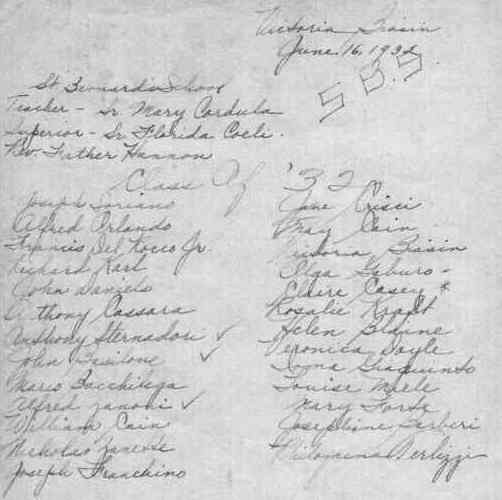 Victoria Biasin
June 16, 1932
S B S.
St Bernard's School
Teacher - Sr Mary Cordula
Superior - Sr. Florida Coeli.
Rev. Father Hannon
Class Of '32
Joseph Soriano
Alfred Orlando
Francis Del Rocco Jr.
Richard Karl
John Daniels
Anthony Cassara
Anthony Sternadori ✓
John ✓
Mario Bacchilega
Alfred Zanoni ✓
William Cain
Nicholas
Joseph Franchino
Jane Crisci
May Cain
Victoria Biasin
Olga
Claire Casey *
Rosalie Kraft
Helen Blaine
Veronica Doyle
Louise Miele
Mary Forte
Josephine Barberi
Philomena Perlizzi